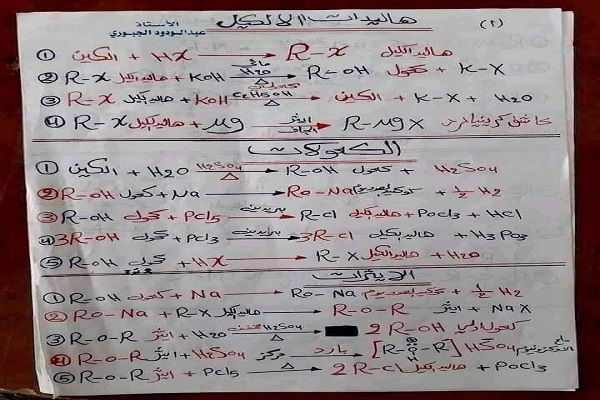 (٢) هاليدات الالكيل الأستاذ
عبدالودود الجبوري
① الكين + HX → R-X هاليد الكيل
② R-X هاليد الكيل + KOH مائي H2O △ → R-OH كحول + K-X
③ R-X هاليد الكيل + KOH C2H5OH △ → الكين + K-X + H2O
④ R-X هاليد الكيل + Mg ايثر الجاف → R-MgX كاشف كرينيارد
الكحولات
① الكين + H2O H2SO4 △ → R-OH كحول + H2SO4
② R-OH كحول + Na → RO-Na + ½ H2
③ R-OH كحول + PCl5 → R-Cl هاليد الكيل + POCl3 + HCl
④ 3R-OH كحول + PCl3 → 3R-Cl هاليد الكيل + H3PO3
⑤ R-OH كحول + HX → R-X هاليد الكيل + H2O
الايثرات
① R-OH كحول + Na → RO-Na + ½ H2
② RO-Na + R-X هاليد الكيل → R-O-R ايثر + NaX
③ R-O-R ايثر + H2O H2SO4 △ → 2 R-OH
④ R-O-R ايثر + H2SO4 مركز بارد → [R-O-R] HSO4 ملح
⑤ R-O-R ايثر + PCl5 △ → 2 R-Cl هاليد الكيل + POCl3